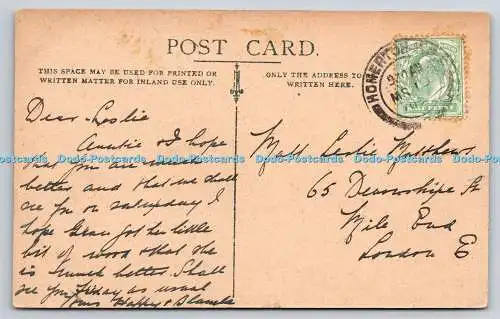 POST CARD.
THIS SPACE MAY BE USED FOR PRINTED OR
WRITTEN MATTER FOR INLAND USE ONLY.
ONLY THE ADDRESS TO
WRITTEN HERE.
HOMERTON
HALF PENNY
Dear Leslie
Auntie & I hope
that you are
better and that we shall
see you on saturday I
hope Gran got her little
bit of wood & that she
is much better. Shall
see you Friday as usual
Yours Happy & Blanche
Mast Leslie Matthews
65 Devonshire St
Mile End
London E
Dods-Postcards.com Dods-Postcards.com Dods-Postcards.com Dods-Postcards.com Dods-Postcards.com